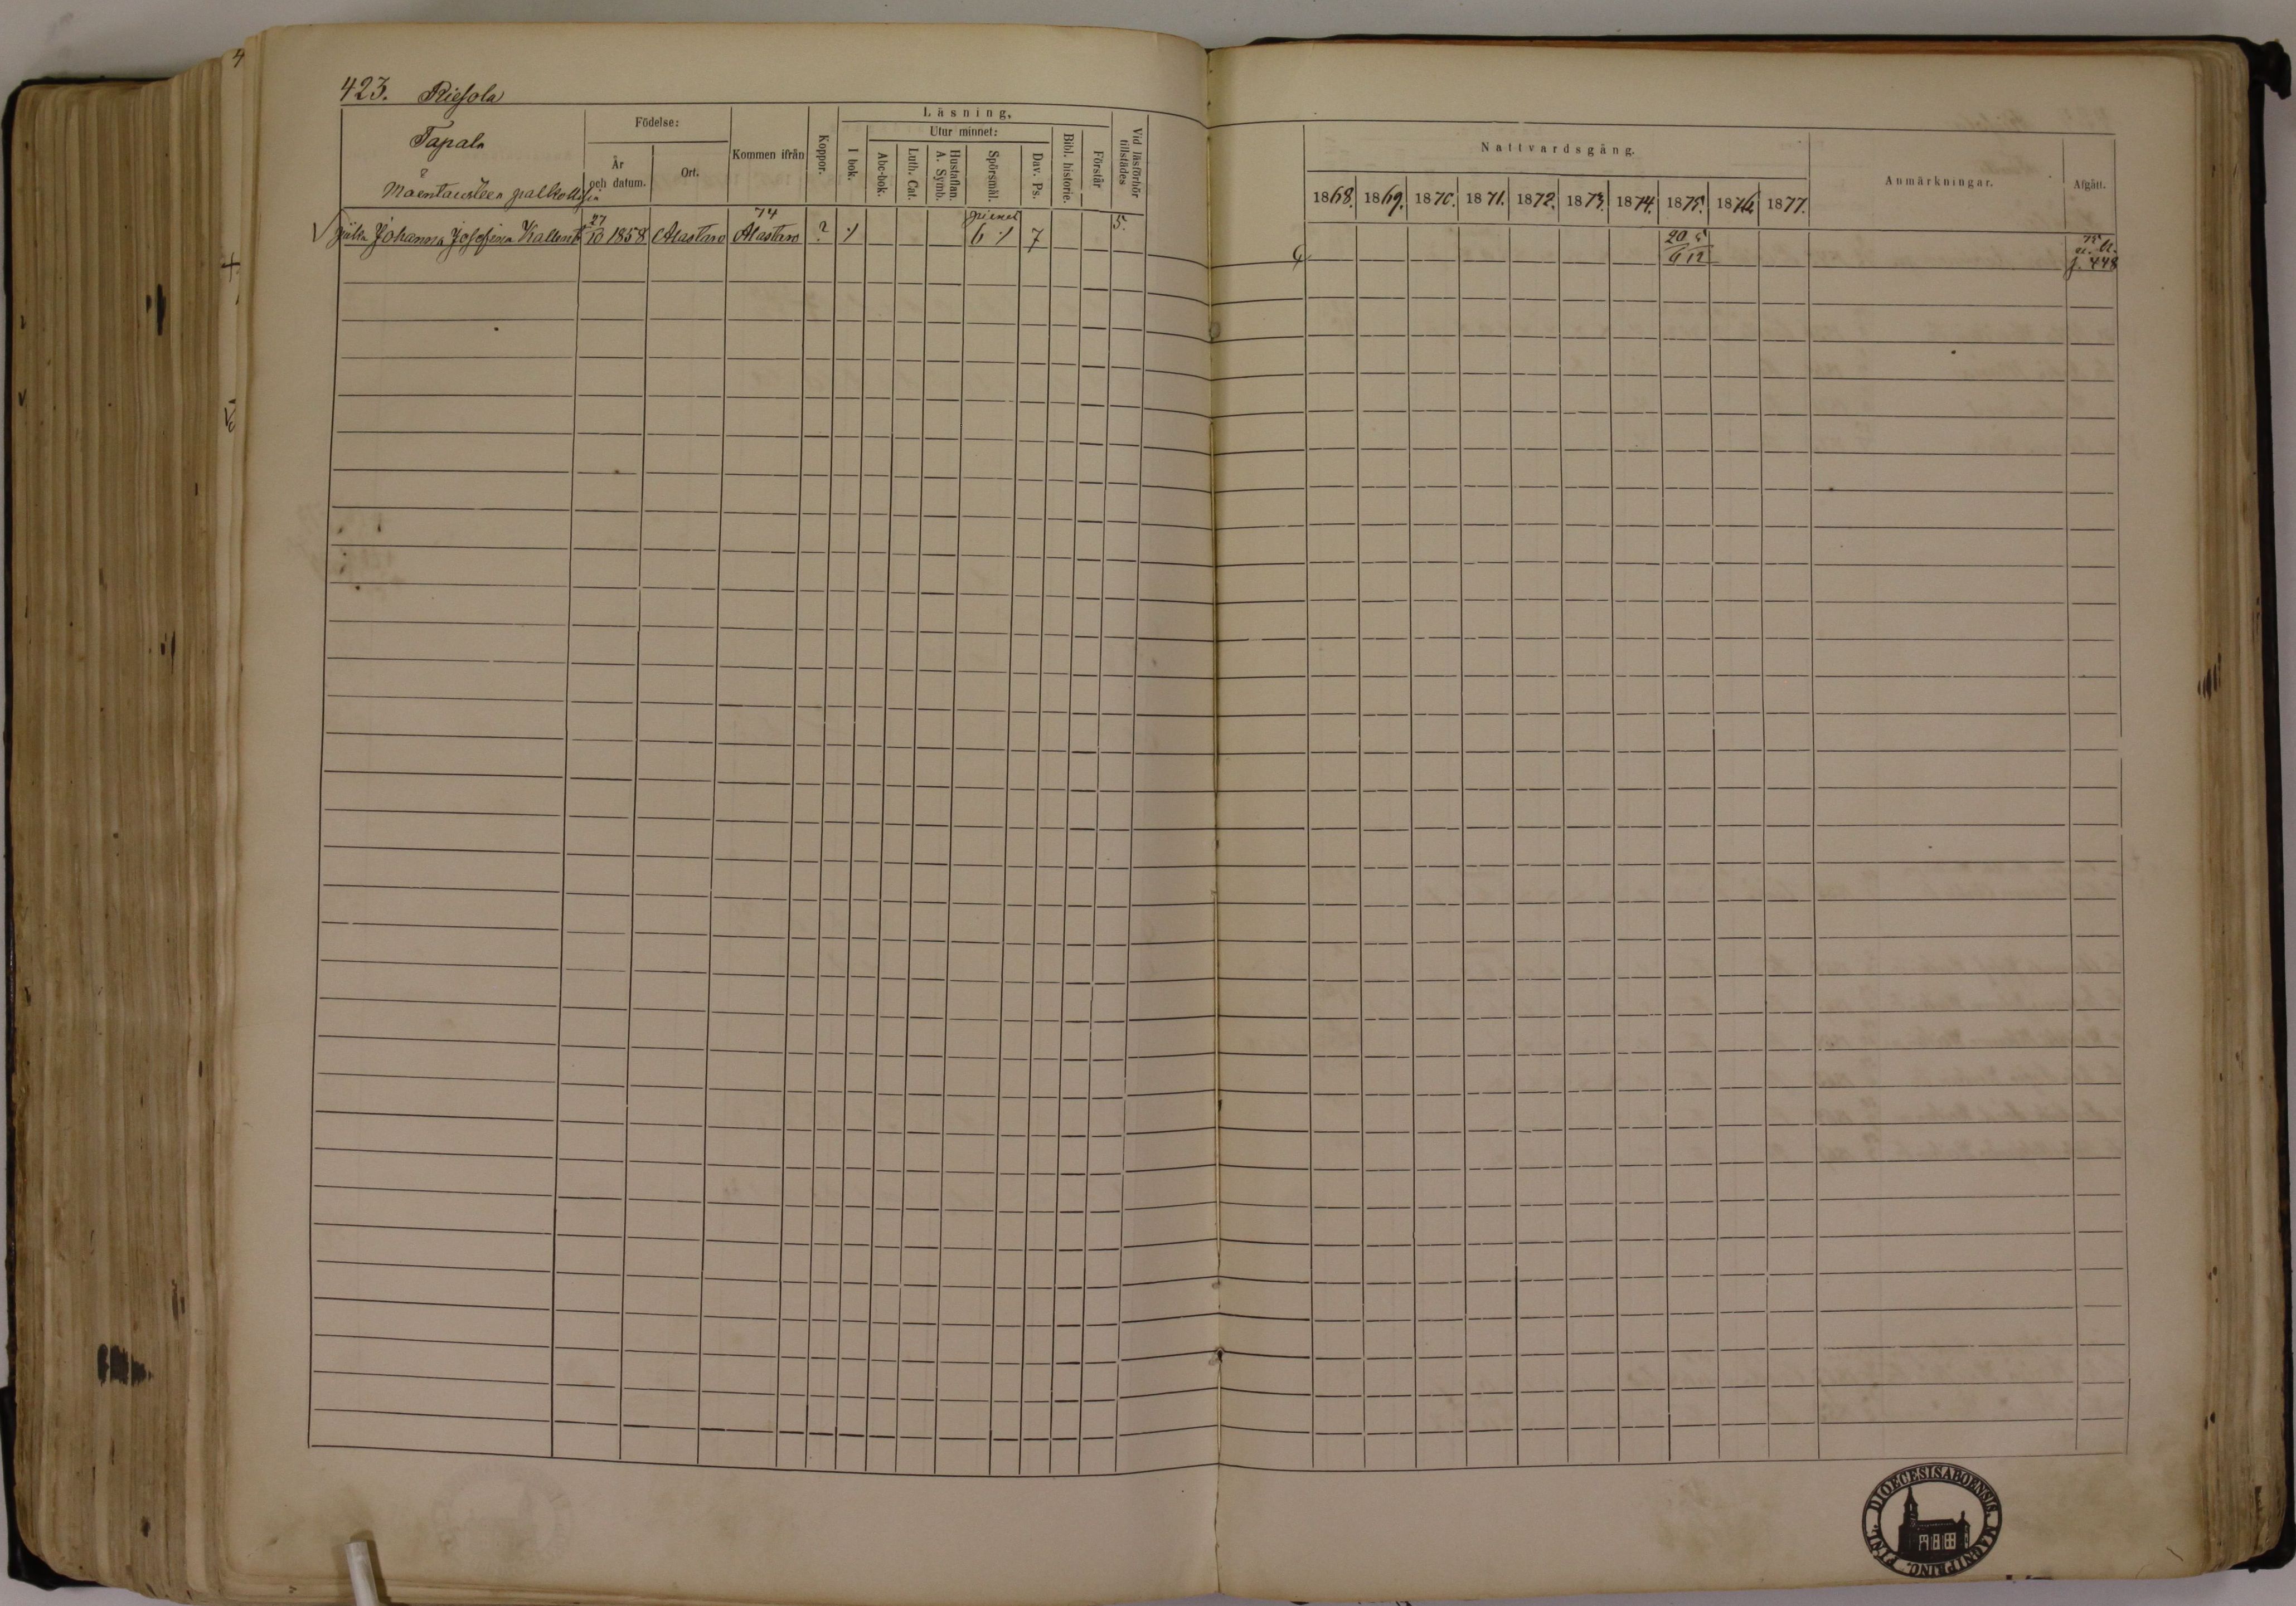 423. Riesola
Tapala
Maentausteen palkollisia
Födelse:
År
och datum.
Ort.
Kommen ifrån
Koppor.
Läsning.
I bok.
Utur minnet:
Abc-bok.
Luth. Cat.
Hustaflan.
A. Symb.
Spörsmål.
Dav. Ps.
Bibl. historie.
Förstår
Vid läsförhör
tillstädes
Nattvardsgång.
1868. 1869. 1870. 1871. 1872. 1873. 1874. 1875. 1876. 1877.
Anmärkningar.
Afgått.
piika Johanna Josefina Kallent 27/10 1858 Alastaro 74 Alastaro ? 7 5.
20/6 5/12
75
448
DIOECESIS ABOENSIS. MAGNI PRINC. FINL.